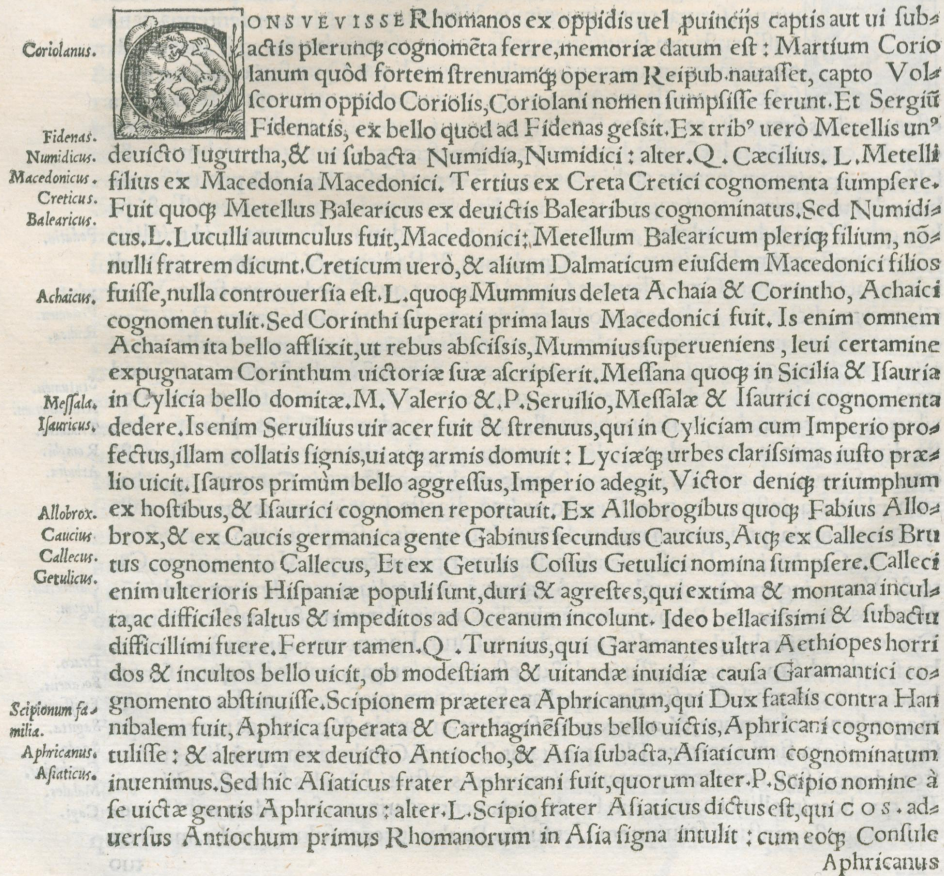 CONSVEVISSE Rhomanos ex oppidis uel ꝓuincijs captis aut ui sub⸗
Coriolanus.
actis plerunq; cognomẽta ferre, memoriæ datum est : Martium Corio
lanum quòd fortem strenuamq́; operam Reipub. nauasset, capto Vol⸗
scorum oppido Coriolis, Coriolani nomen sumpsisse ferunt. Et Sergiũ
Fidenas.
Fidenatis, ex bello quod ad Fidenas gessit. Ex tribꝰ uerò Metellis unꝰ
Numidicus.
deuicto Iugurtha, & ui subacta Numidia, Numidici : alter. Q. Cæcilius. L. Metelli
Macedonicus.
filius ex Macedonia Macedonici. Tertius ex Creta Cretici cognomenta sumpsere.
Creticus.
Balearicus.
Fuit quoq; Metellus Balearicus ex deuictis Balearibus cognominatus. Sed Numidi⸗
cus. L. Luculli auunculus fuit, Macedonici: Metellum Balearicum pleriq; filium, nõ⸗
nulli fratrem dicunt. Creticum uerò, & alium Dalmaticum eiusdem Macedonici filios
Achaicus.
fuisse, nulla controuersia est. L. quoq; Mummius deleta Achaia & Corintho, Achaici
cognomen tulit. Sed Corinthi superati prima laus Macedonici fuit. Is enim omnem
Achaiam ita bello afflixit, ut rebus abscissis, Mummius superueniens, leui certamine
expugnatam Corinthum uictoriæ suæ ascripserit. Messana quoq; in Sicilia & Isauria
Messala.
in Cylicia bello domitæ. M. Valerio &. P. Seruilio, Messalæ & Isaurici cognomenta
Isauricus.
dedere. Is enim Seruilius uir acer fuit & strenuus, qui in Cyliciam cum Imperio pro⸗
fectus, illam collatis signis, ui atq; armis domuit : Lyciæq́; urbes clarissimas iusto præ⸗
lio uicit. Isauros primùm bello aggressus, Imperio adegit, Victor deniq; triumphum
Allobrox.
ex hostibus, & Isaurici cognomen reportauit. Ex Allobrogibus quoq; Fabius Allo⸗
Caucius
brox, & ex Caucis germanica gente Gabinus secundus Caucius, Atq; ex Callecis Bru
Callecus.
tus cognomento Callecus, Et ex Getulis Cossus Getulici nomina sumpsere. Calleci
Getulicus.
enim ulterioris Hispaniæ populi sunt, duri & agrestes, qui extima & montana incul⸗
ta, ac difficiles saltus & impeditos ad Oceanum incolunt. Ideo bellacissimi & subactu
difficillimi fuere. Fertur tamen. Q. Turnius, qui Garamantes ultra Aethiopes horri
dos & incultos bello uicit, ob modestiam & uitandæ inuidiæ causa Garamantici co⸗
Scipionum fa⸗
gnomento abstinuisse. Scipionem præterea Aphricanum, qui Dux fatalis contra Han
milia.
nibalem fuit, Aphrica superata & Carthaginẽsibus bello uictis, Aphricani cognomen
Aphricanus.
tulisse : & alterum ex deuicto Antiocho, & Asia subacta, Asiaticum cognominatum
Asiaticus.
inuenimus. Sed hic Asiaticus frater Aphricani fuit, quorum alter. P. Scipio nomine à
se uictæ gentis Aphricanus : alter. L. Scipio frater Asiaticus dictus est, qui COS. ad⸗
uersus Antiochum primus Rhomanorum in Asia signa intulit : cum eoq; Consule
Aphricanus